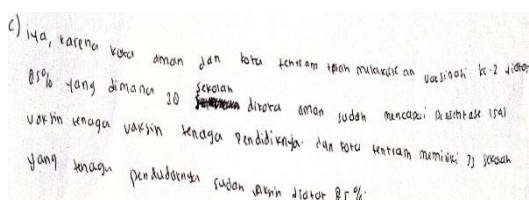 c) iya, karena kota aman dan kota tentram telah melakukan vaksinasi ke-2 diatas
85% yang dimana 30 sekolah dikota aman sudah mencapai
vaksin tenaga vaksin tenaga Pendidiknya. dan kota tentram memiliki 75 sekolah
yang tenaga pendudiknya sudah vaksin diatas 85%.